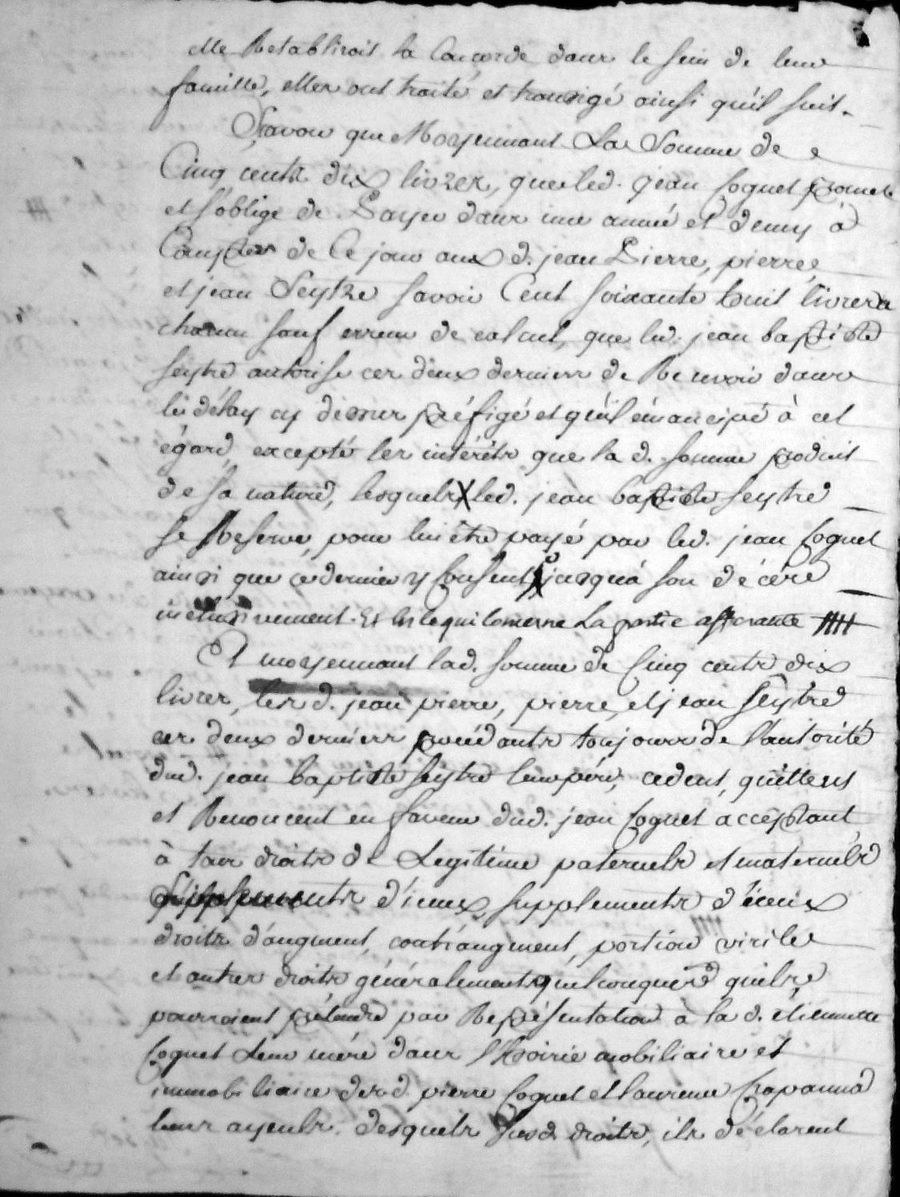 elle Retabliroit la Concorde dans le sein de leur
famille, elles ont traité et transigé ainsi qu'il suit.
Sçavoir que Moyennant La Somme de
Cinq cents dix livres, que led. jean Coquet promet
et s'oblige de Payer dans une année et demy à
Compter de Ce jour aux d. jean Pierre, pierre
et jean Seytre savoir Cent soixante huit livres
chacun sauf erreur de calcul, que led. jean baptiste
seytre autorise ces deux derniers de Recevoir dans
le délay cy dessus préfigé et qu'il émancipe à cet
égard, excepté les intérêts que la d. somme produit
de sa nature, lesquels led. jean baptiste seytre
se Reserve, pour lui être payé par led. jean Coquet
ainsi que ce dernier y Consent jusqu'à son décéré
inclusivement. Et en ce qui Concerne La partie afferante
Et moyennant lad. somme de Cinq cents dix
livres, les d. jean pierre, pierre, et jean seytre
ces deux derniers procédants toujours de l'autorité
dud. jean baptiste seytre leur père, cedent, quittent
et Renoncent en faveur dud. jean Coquet acceptant
à tous droits de Legitime paternels et maternels
supplements d'iceux, supplements d'iceux
droits d'augment, contr'augment, portion virile
et autres droits généralements quelconques qu'ils
pourroient prétendre par Représentation à la d. étiennette
Coquet Leur mére dans l'hoirie mobiliaire et
immobiliaire desd. pierre Coquet et laurence
leurs ayeuls. desquels susd. droits, ils déclarent